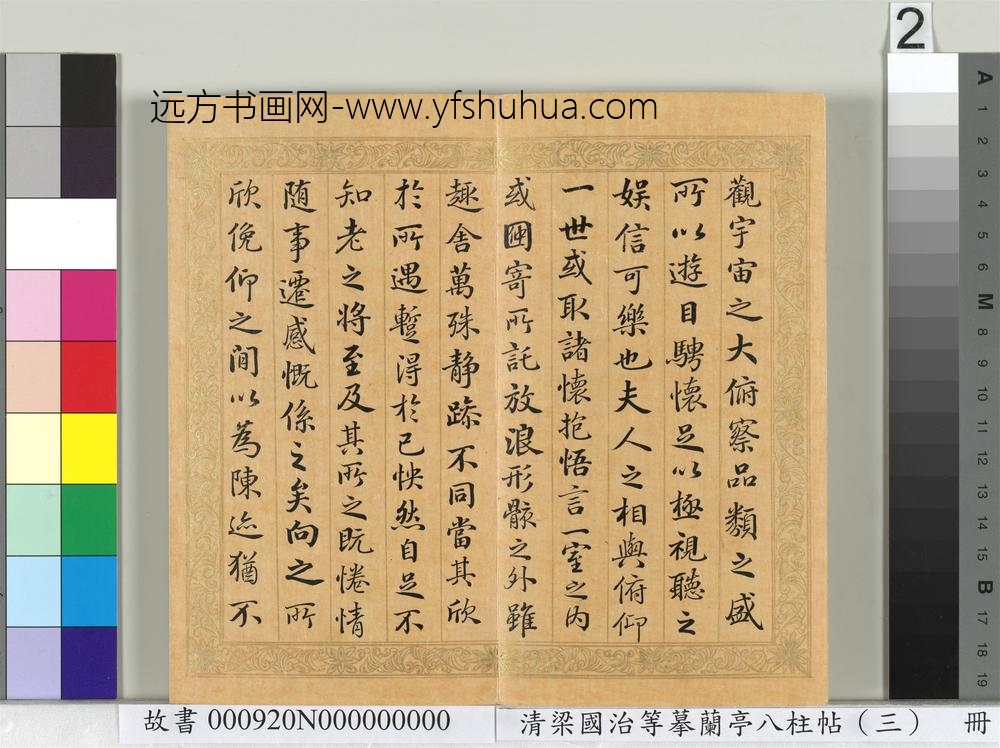 2
远方书画网-www.yfshuhua.com
觀宇宙之大俯察品類之盛
所以遊目騁懷足以極視聽之
娛信可樂也夫人之相與俯仰
一世或取諸懷抱悟言一室之內
或因寄所託放浪形骸之外雖
趣舍萬殊静躁不同當其欣
於所遇蹔得於己怏然自足不
知老之將至及其所之既惓情
随事遷感慨係之矣向之所
欣俛仰之閒以為陳迹猶不
A 1 2 3 4 5 6 M 8 9 10 11 12 13 14 15 B 17 18 19
故書 000920N000000000
清梁國治等摹蘭亭八柱帖（三） 冊